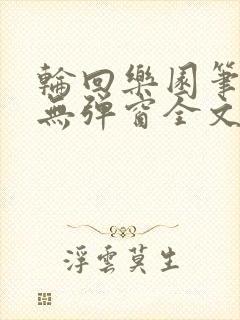 輪回樂園筆
無彈窗全文
浮雲莫生